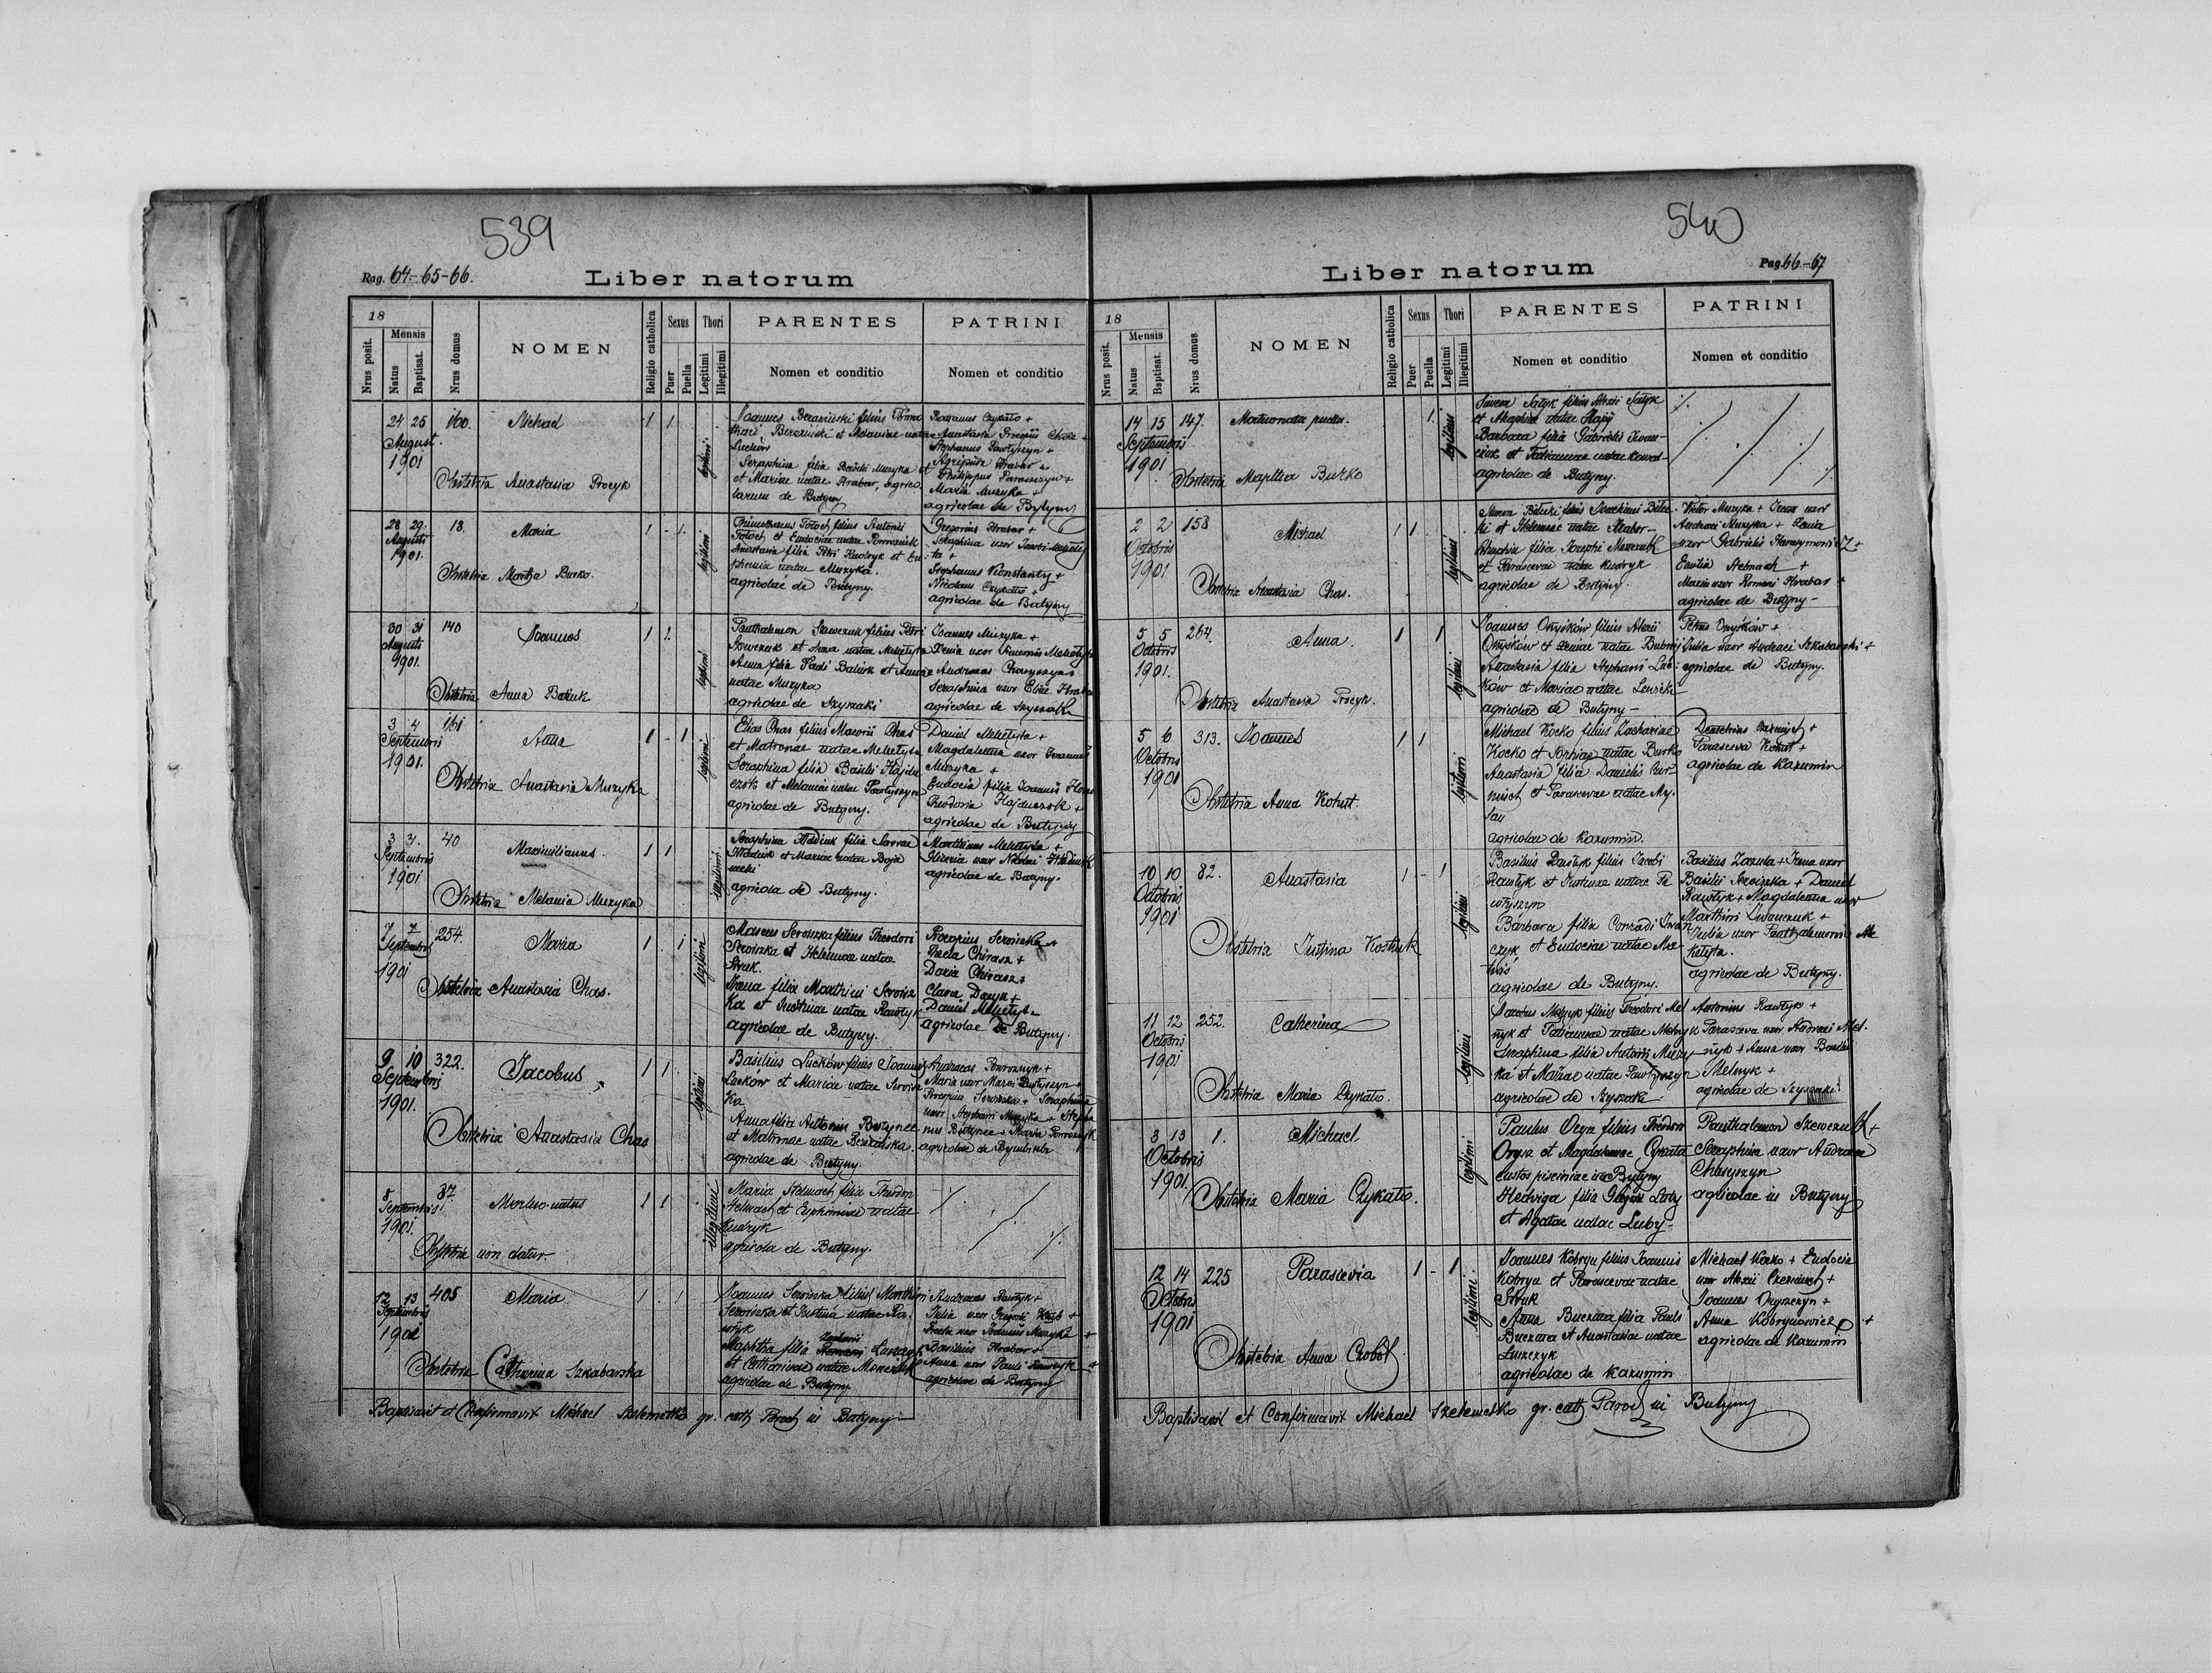 539
Rag. 64-65-66.
Liber natorum
18
Mensis
Nrus posit.
Natus
Baptisat.
Nrus domus
NOMEN
Religio catholica
Sexus
Puer
Puella
Thori
Legitimi
Illegitimi
PARENTES
Nomen et conditio
PATRINI
Nomen et conditio
24 25 160. Michael 1 1
August.
1901
Obstetrix Anastasia Procyk
legitimi
Joannes Berezinski filius Timo
thei Berezinski et Melaniae natae
Luckow
Seraphina filia Muzyka et
et Mariae natae Hrabar, agrico
larum de Butyny
Romanus Czykało +
Anastasia Procopii Chas +
Stephanus Pawłyszyn +
Agripina Hrabar +
Philippus Paraszczyn +
Maria Muzyka +
agricolae de Butyny
28 29 13. Maria 1 - 1.
Augusti
1901.
Obstetrix Martha Burko.
legitimi
filius Antonii
Potoch et Eudociae natae
Anastasia filia Petri Kudryk et Eu
phemia natae Muzyka.
agricolae de Butyny.
Gregorius Hrabar +
Seraphina uxor Jacobi Mełety
ta +
Stephanus Konstanty +
Nicolaus Czykało +
agricolae de Butyny
30 31 140 Joannes 1 1.
Augusti
1901.
Obstetrix Anna Baluk
legitimi
Panthalemon Szewczuk filius Petri
Szewczuk et Anna natae Mełetyta
Anna filia Pauli Baluk et Annae
natae Muzyka
agricolae de Szyszaki
Joannes Muzyka +
Xenia uxor Mełetyta
Andreas Charyszyn +
Seraphina uxor Eliae Hrabar
agricolae de Szyszaki
3 4 161 Anna 1 - 1
Septembris
1901.
Obstetrix Anastasia Muzyka
legitimi
Elias Chas filius Chas
et Matronae natae Mełetyta
Seraphina filia Basilii Hajdu
czok et Melaniae natae Pawłyszyn
agricolae de Butyny.
Daniel Mełetyta +
Magdalena uxor Joannis
Muzyka +
Eudocia filia Joannis
Theodosia Hajduczok +
agricolae de Butyny
3 3. 40 Maximilianus. 1 1
Septembris
1901
Obstetrix Melania Muzyka
illegitimi
Seraphina Hladiuk filia Savvae
Hladiuk et Mariae natae
agricola de Butyny.
Matthias Mełetyta +
Gliceria uxor Nicolai Hladiuk
agricolae de Butyny.
7 7 254. Maria 1 . 1
Septembris
1901
Obstetrix Anastasia Chas.
legitimi
Marcus Seroiszka filius Theodori
Seroiszka et Helenae natae
Struk.
Anna filia Matthiai Seroisz
ka et Justinae natae Rawłyk
agricolae de Butyny.
Procopius Seroiszka +
Thecla Chirasz +
Daria Chirasz +
Clara Dacyk +
Daniel Mełetyta
agricolae de Butyny.
9 10 322. Jacobus 1 1.
Septembris
1901.
Obstetrix Anastasia Chas
legitimi
Basilius Łucków filius Joannis
Łucków et Mariae natae Seroisz
ka
Anna filia Antonii Butynec
et Matronae natae Bereziańska.
agricolae de Butyny.
Andreas Poworoznyk +
Maria uxor Marci Pawłyszyn +
Procopius Seroiszka + Seraphina
uxor Stephani Muzyka + Stepha
nus Butynec + Maria Poworoznyk
agricolae de Butyny
8 87. Mortuo-natus 1 1
Septembris
1901.
Obstetrix non datur.
illegitimi
Maria Stelmach filia Theodori
Stelmach et Euphemiae natae
Kudryk
agricola de Butyny.
12 13 405 Maria 1 . 1
Septembris
1901
Obstetrix Catharina Szkabarska
Joannes Seroiszka filius Matthiai
Seroiszka et Justina natae Ra-
włyk
Zachari
Maphtha filia Romani
et Catharinae natae
agricolae de Butyny
Andreas Rawłyk +
Julia uxor Gregorii +
Thecla uxor Joannis Muzyka +
Basilius Hrabar +
Anna uxor Pauli +
agricolae de Butyny
Baptisavit et Confirmavit Michael Szełemetko gr. cath Paroch in Butyny
540
Liber natorum
Pag. 66-67
18
Mensis
Nrus posit.
Natus
Baptisat.
Nrus domus
NOMEN
Religio catholica
Sexus
Puer
Puella
Thori
Legitimi
Illegitimi
PARENTES
Nomen et conditio
PATRINI
Nomen et conditio
14 15 147. Mortuonata puella. 1.
Septembris
1901.
Obstetrix Maphta Burko
legitimi
Simeon Satyk filius Alexii Satyk
et natae
Barbara filia Gabrielis Iwan-
ciuk et Tatiannae natae Kowal-
agricolae de Butyny.
2 2 158 Michael 1 1
Octobris
1901
Obstetrix Anastasia Chas.
legitimi
Simeon Bilecki filius Joachimi Bilec-
ki et Helenae natae Hrabar-
Sophia filia Josephi
et Parascevae natae Kudryk
agricolae de Butyny.
Victor Muzyka + uxor
Andreai Muzyka + Xenia
uxor Gabrielis Harasymowicz +
Emilia Stelmach +
Maria uxor Romani Hrabar +
agricolae de Butyny-
5 5 264. Anna. 1 1
Octobris
1901.
Obstetrix Anastasia Procyk.
legitimi
Joannes Onyśków filius Alexii
Onyśków et Xeniae natae
Anastasia filia Stephani Łuc-
ków et Mariae natae
agricolae de Butyny-
Petrus Onyśków +
Julia uxor Andreai Szkabarski +
agricolae de Butyny.
5 6 313. Joannes 1 1
Octobris
1901
Obstetrix Anna Kohut.
legitimi
Michael Kocko filius Zachariae
Kocko et Sophiae natae Burko
Anastasia filia Danielis
et Parascevae natae
agricolae de Kazumin.
Demetrius +
Parasceva Kohut +
agricolae de Kazumin
10 10 82. Anastasia 1 - 1
Octobris
1901
Obstetrix Justina Kostiuk
legitimi
Basilius Rawłyk filius Jacobi
Rawłyk et Justinae natae Pa
włyszyn
Barbara filia Conradi Iwan
czyk et Eudociae natae
agricolae de Butyny.
Basilius Zozula + Anna uxor
Basilii Seroiszka + Daniel
Rawłyk + Magdalena uxor
Matthiai Iwanczuk +
Julia uxor Panthalemonis Me
łetyta.
agricolae de Butyny.
11 12 252. Catherina
Octobris
1901
Obstetrix Maria Czykało.
legitimi
Jacobus Melnyk filius Theodori Mel
nyk et Tatiannae natae Melnyk
Seraphina filia Antonii Muzy-
ka et Mariae natae Pawłyszyn
agricolae de Szyszaki.
Antonius Rawłyk +
Parasceva uxor Andreai Mel-
nyk + Anna uxor Basilii
Melnyk +
agricolae de Szyszaki
3 13 1. Michael
Octobris
1901.
Obstetrix Maria Czykało.
legitimi
Paulus Orysz filius Theodori
Orysz et Magdalenae Czykało
custos pisciniae in Butyny
Hedviga filia
et Agatae natae Luby-
Panthalemon Szewczuk +
Seraphina uxor Andreae
Charyszyn
agricolae in Butyny
12 14 225 Parascevia 1 - 1
Octobris
1901
Obstetrix Anna Czobot
legitimi
Joannes Kobryn filius Joannis
Kobryn et Parascevae natae
Struk
Anna Buczma filia Pauli
Buczma et Anastasiae natae
Łuszczyk
agricolae de Kazumin
Michael Kocko + Eudocia
uxor Alexii +
Joannes Oryszczyn +
Anna Kobrynowicz +
agricolae de Kazumin
Baptisavit et Confirmavit Michael Szełemetko gr. cath Paroch in Butyny